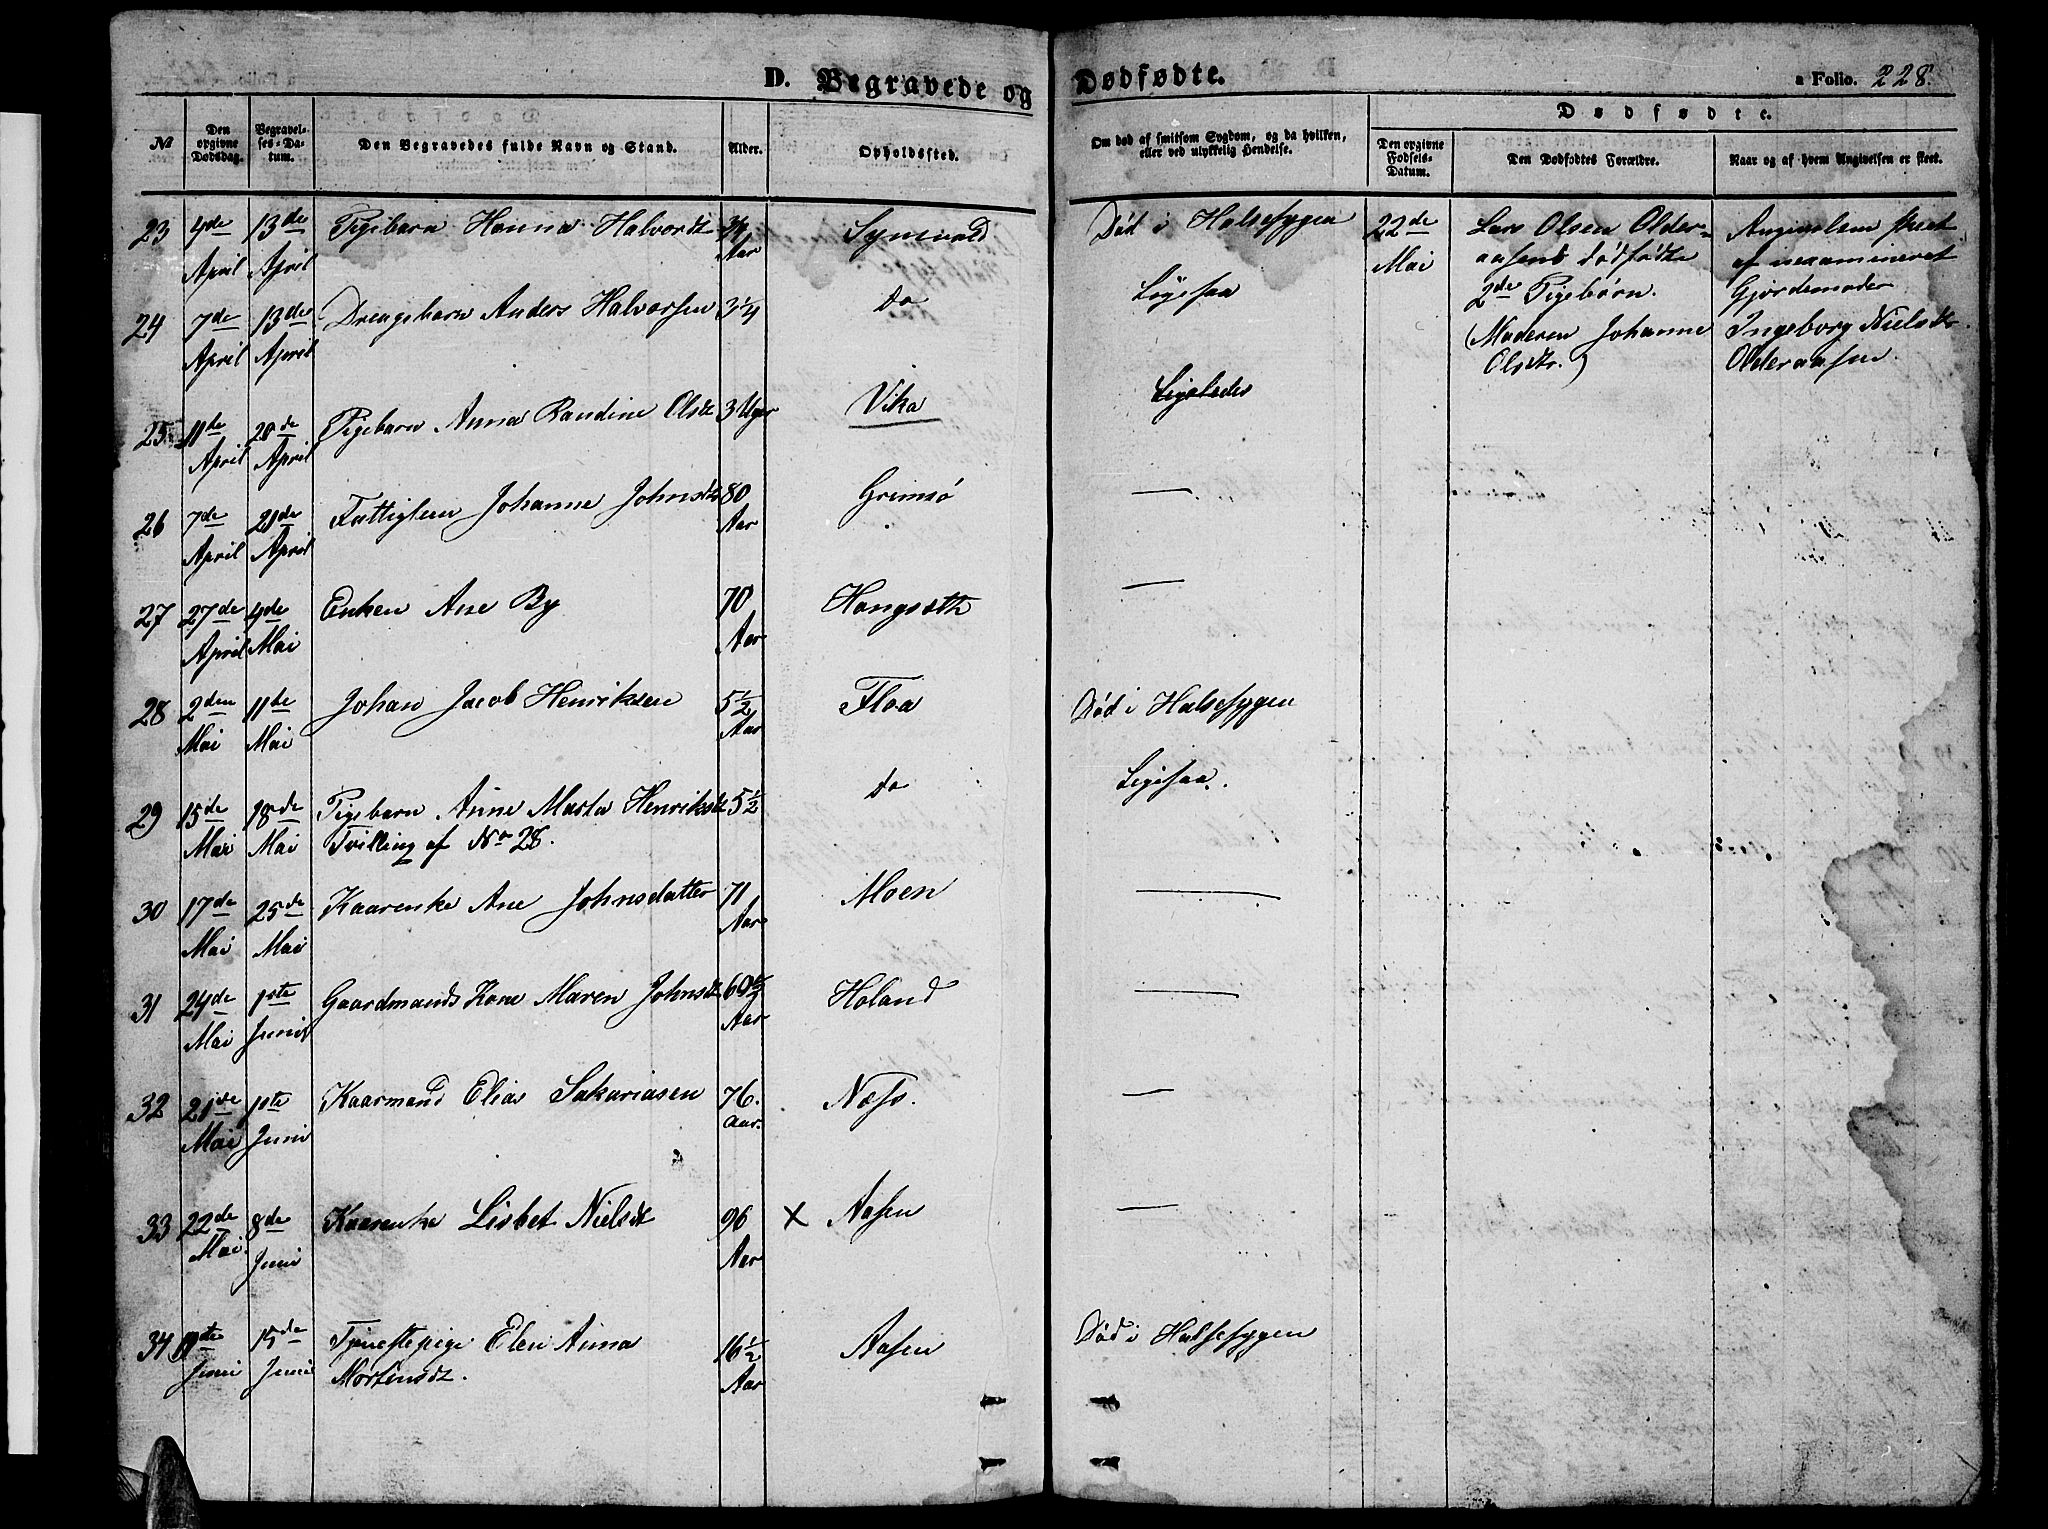 D. Begravede og Dødfødte.
a Folio. 228.
№
Den opgivne Dødsdag.
Begravelses-Datum.
Den Begravedes fulde Navn og Stand.
Alder.
Opholdssted.
Om død af smitsom Sygdom, og da hvilken, eller ved ulykkelig Hendelse.
Dødfødte.
Den opgivne Fødsels-Datum.
Den Dødfødtes Forældre.
Naar og af hvem Angivelsen er skeet.
23 4de April 13de April Pigebarn Hanna Halvordt 3/4 Aar Død i Halssygen
24 7de April 13de April Drengebarn Anders Halvorsen 3 1/4 do Ligesaa
25 11de April 20de April Pigebarn Anna Randine Olsdt 3 Uger Vika Ligeledes
26 7de April 21de April Fattiglem Johanne Johnsdt 80 Aar Grimsø —
27 27de April 4de Mai Enken Ane By 70 Aar Hongseth —
28 2den Mai 11de Mai Johan Jacob Henriksen 5 1/2 Aar Floa Død i Halssygen
29 15de Mai 18de Mai Pigebarn Anne Marta Henriksdt 5 1/2 do Ligesaa.
Tvilling af No 28.
30 17de Mai 25de Mai Kaarenke Ane Johnsdatter 71 Aar Moen —
31 24de Mai 1ste Juni Gaardmands Kone Maren Johnsdt Aar Holand —
32 21de Mai 1ste Juni Kaarmand Elias Sakariasen 76. Aar. Næss. —
33 22de Mai. 8de Juni Kaarenke Lisbet Nielsdt 96 Aar X Aasen —
34 Juni 15de Juni Tjenestepige Elen Anna 16 1/2 Aar Aasen Død i Halssygen
Mortensdt.
22de Mai
Lars Olsen Older-
aasens dødfødte
2de Pigebørn.
(Moderen Johanne
Olsdtr.)
Angivelsen skeet
af nexamineret
Gjordemoder
Ingeborg Nielsdtr.
Olderaasen.